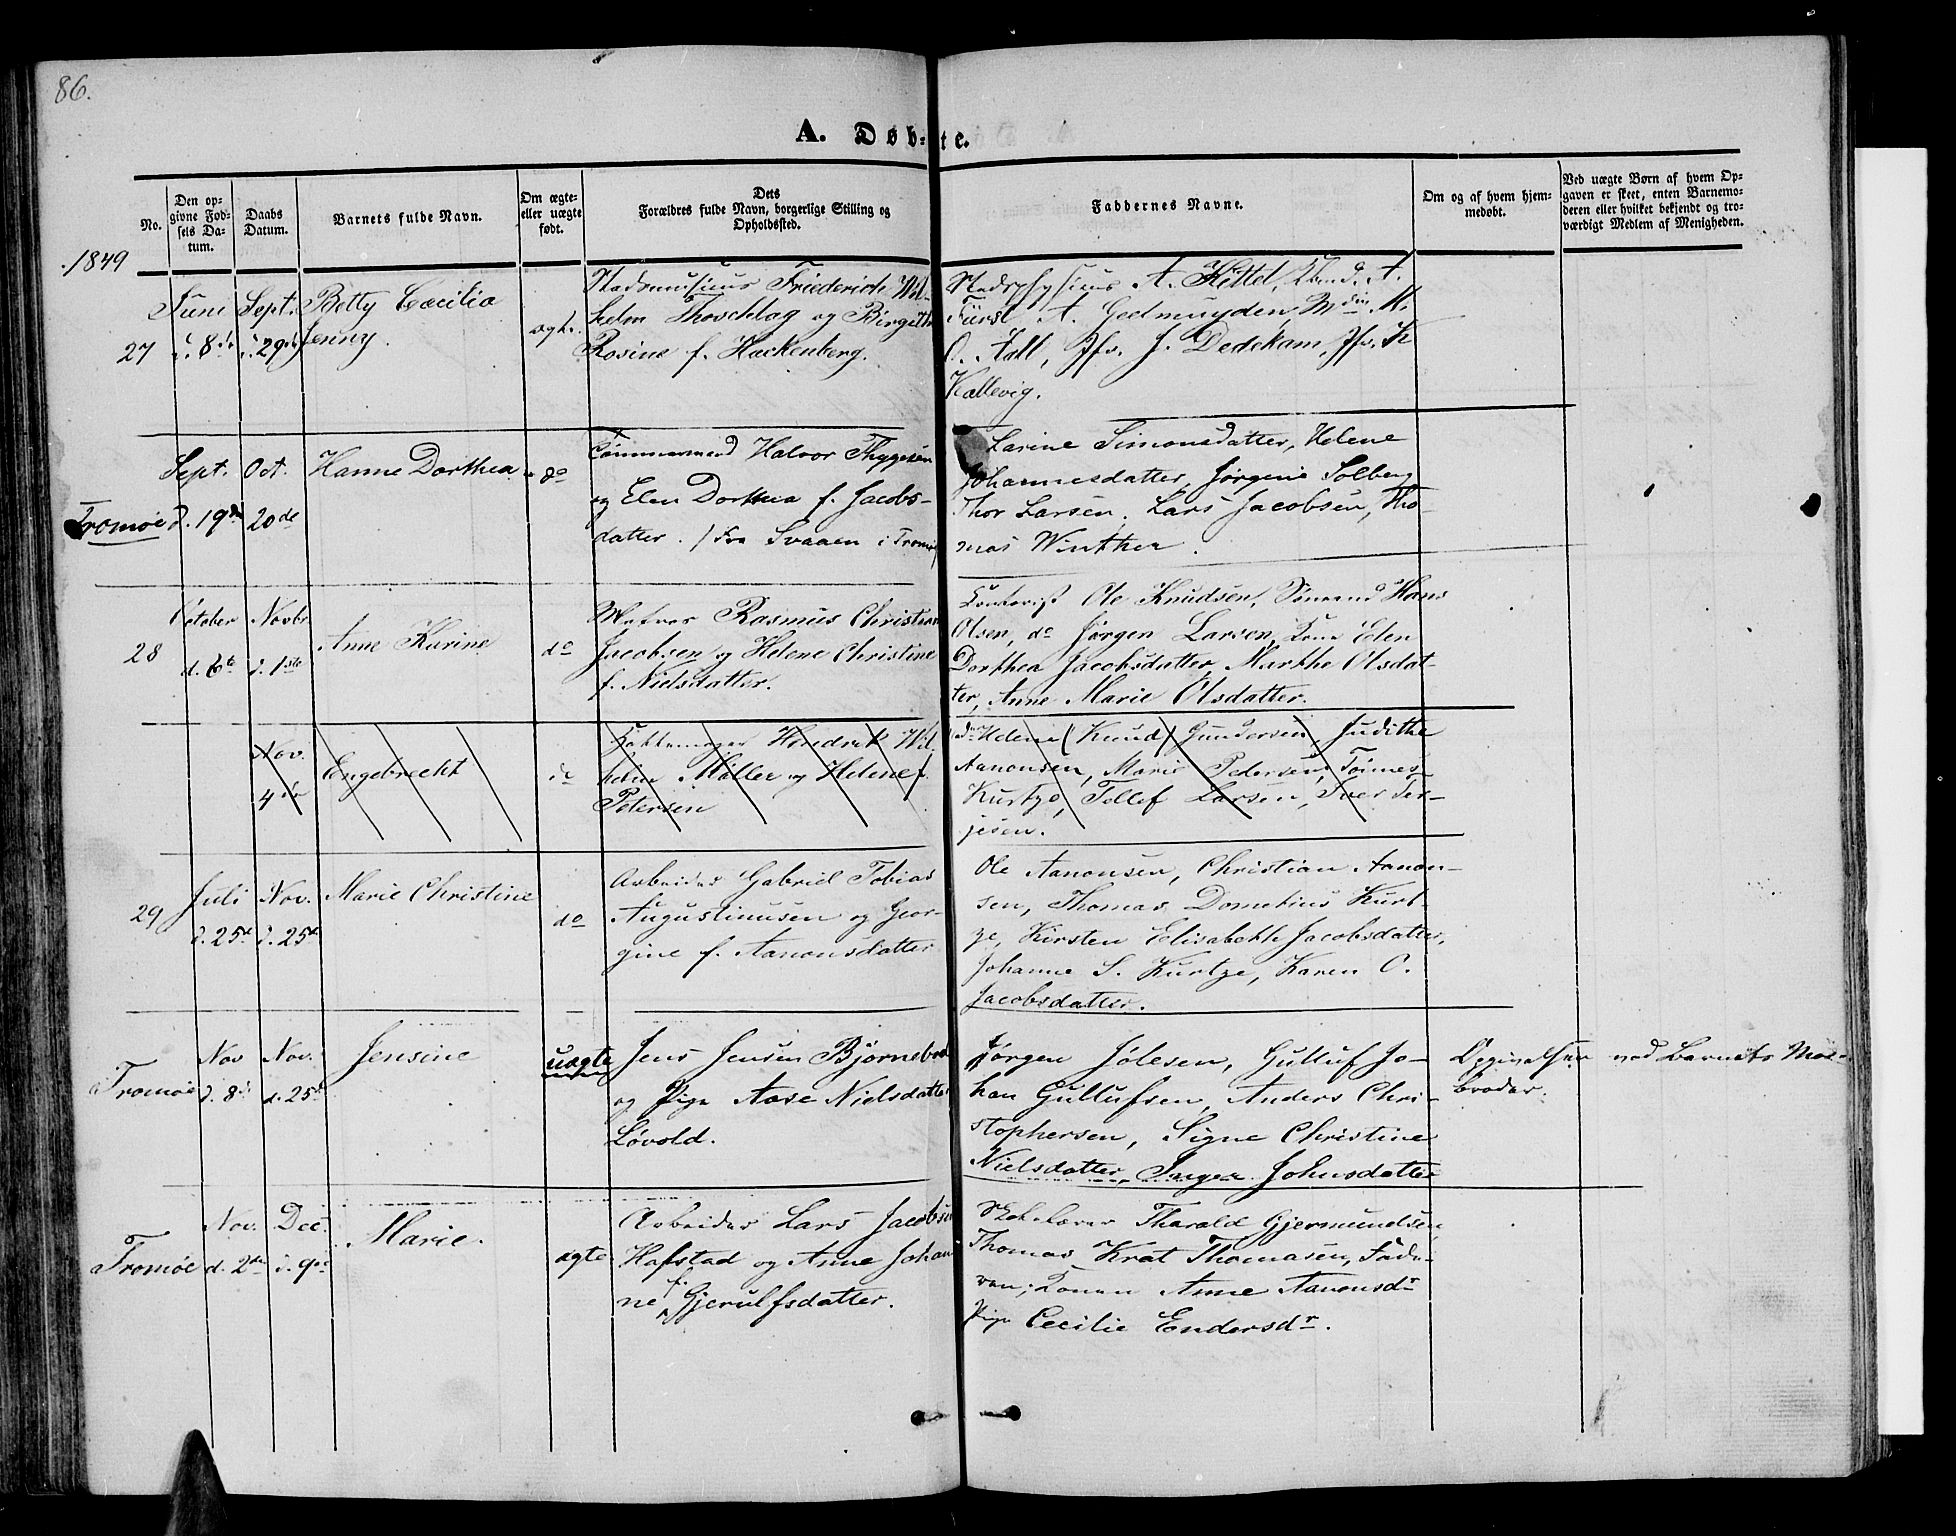 86.
A. Døb-te.
No.
Den op-
givne Fød-
sels Da-
tum.
Daabs
Datum.
Barnets fulde Navn.
Om ægte-
eller uægte
født.
Dets
Forældres fulde Navn, borgerlige Stilling og
Opholdssted.
Faddernes Navne.
Om og af hvem hjem-
medøbt.
Ved uægte Børn af hvem Op-
gaven er skeet, enten Barnemo-
deren eller hvilket bekjendt og tro-
værdigt Medlem af Menigheden.
1849
27
Juni
d. 8de
Sept.
d. 29de
Betty Cæcilia
Jenny.
ægte.
Stadsmusicus Friederich Wil-
helm Thoschlag og Birgitte
Rosine f. Hackenberg.
Stadsphysicus A. Kittel, Kbmd. A.
Fürst A. Geelmuyden Mdm M.
O. Aall, Jfr. J. Dedekam, Jfr. K
Kallevig.
Tromøe
Sept.
d. 19de
Oct.
20de
Hanne Dorthea
do
Tømmermand Halvor Thygesen
og Elen Dorthea f. Jacobs-
datter. / Fra Svaaen i Tromø /
Larine Simonsdatter, Helene
Johannesdatter, Jørgine Solberg
Thor Larsen, Lars Jacobsen, Tho-
mas Winther.
28
October
d. 6te
Novbr
d. 1ste
Anne Karine
do
Matros Rasmus Christian
Jacobsen og Helene Christine
f. Nielsdatter.
Contorist Ole Knudsen, Sømand Hans
Olsen, do Jørgen Larsen, Kone Elen
Dorthea Jacobsdatter, Marthe Olsdat-
ter, Anne Marie Olsdatter.
Nov.
4de
Engebrecht
do
Pottemager Hendrik Wil-
helm Møller og Helene f.
Petersen
Helene (Knud) Gundersen, Judithe
Aanonsen, Marie Pedersen, Tønnes
Kurtze, Tellef Larsen, Iver Ter-
jesen.
29
Juli
d. 25de
Nov.
d. 25de
Marie Christine
do
Arbeider Gabriel Tobias
Augustinusen og Geor-
gine f. Aanonsdatter
Ole Aanonsen, Christian Aanon-
sen, Thomas Dometius Kurt-
ze, Kirsten Elisabeth Jacobsdatter,
Johanne S. Kurtze, Karen O.
Jacobsdatter.
Tromøe
Nov
d. 8de
Nov.
d. 25de
Jensine
uægte
Jens Jensen Bjørnebo
og Pige Aase Nielsdatter
Løvold.
Jørgen Jolesen, Gulluf Jo-
han Gullufsen, Anders Chri-
stophersen, Signe Christine
Nielsdatter, Inger Johnsdatter
Opgivelsen ved Barnets Mor-
broder.
Tromøe
Nov.
d. 2den
Dec.
d. 9de
Marie.
ægte
Arbeider Lars Jacobsen
Hafstad og Anne Johan
ne f. Gjerulfsdatter.
Skolelærer Tharald Gjermundsen
Thomas Krat Thomasen, Fade-
ren, Konen Anne Aanonsdr
Pige Cecilie Endersdr.